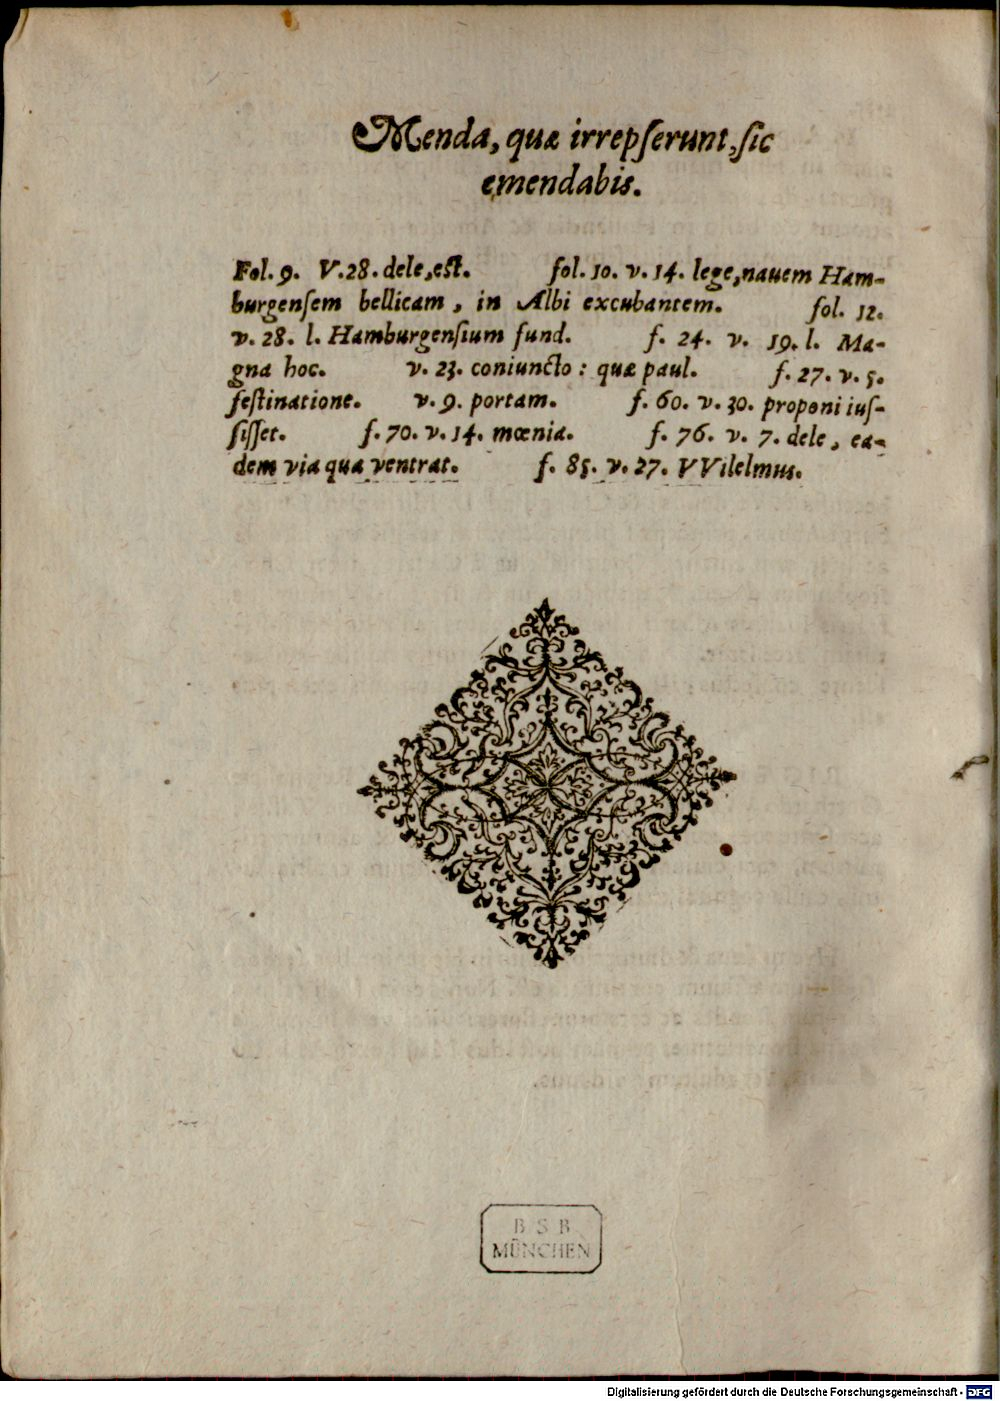 Menda, quæ irrepſerunt, ſic
emendabis.
Fol. 9. V. 28. dele, eſt. fol. 10. v. 14. lege, nauem Ham-
burgenſem bellicam, in Albi excubantem. fol. 12.
v. 28. l. Hamburgenſium fund. f. 24. v. 19. l. Ma-
gna hoc. v. 23. coniuncto: quæ paul. f. 27. v. 5.
feſtinatione. v. 9. portam. f. 60. v. 30. proponi iuſ-
ſiſſet. f. 70. v. 14. mœnia. f. 76. v. 7. dele, ea-
dem via qua ventrat. f. 85. v. 27. VVilelmus.
B S B
MÜNCHEN
Digitalisierung gefördert durch die Deutsche Forschungsgemeinschaft - DFG